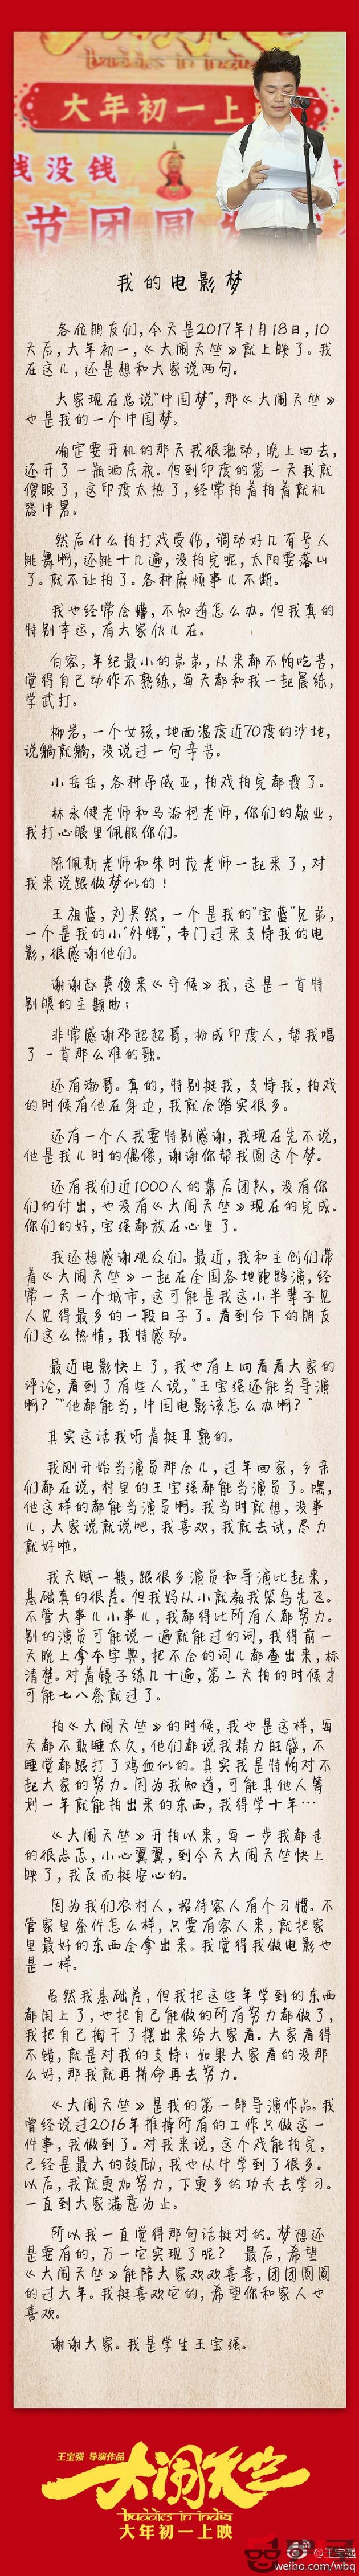 buddies in india
大年初一上
钱没钱
节团圆
我的电影梦
各位朋友们，今天是2017年1月18日，10
天后，大年初一，《大闹天竺》就上映了。我
在这儿，还是想和大家说两句。
大家现在总说“中国梦”，那《大闹天竺》
也是我的一个中国梦。
确定要开机的那天我很激动，晚上回去，
还开了一瓶酒庆祝。但到印度的第一天我就
傻眼了，这印度太热了，经常拍着拍着就机
器中暑。
然后什么拍打戏受伤，调动好几百号人
跳舞啊，还跳十几遍，没拍完呢，太阳要落山
了。就不让拍了。各种麻烦事儿不断。
我也经常会懵，不知道怎么办。但我真的
特别幸运，有大家伙儿在。
白客，年纪最小的弟弟，从来都不怕吃苦，
觉得自己动作不熟练，每天都和我一起晨练，
学武打。
柳岩，一个女孩，地面温度近70度的沙地，
说躺就躺，没说过一句辛苦。
小岳岳，各种吊威亚，拍戏拍完都瘦了。
林永健老师和马浴柯老师，你们的敬业，
我打心眼里佩服你们。
陈佩斯老师和朱时茂老师一起来了，对
我来说跟做梦似的！
王祖蓝，刘昊然，一个是我的“宝蓝”兄弟，
一个是我的小“外甥”，专门过来支持我的电
影，很感谢他们。
谢谢赵英俊来《守候》我，这是一首特
别暖的主题曲；
非常感谢邓超超哥，扮成印度人，帮我唱
了一首那么难的歌。
还有渤哥。真的，特别挺我，支持我，拍戏
的时候有他在身边，我就会踏实很多。
还有一个人我要特别感谢，我现在先不说，
他是我儿时的偶像，谢谢你帮我圆这个梦。
还有我们近1000人的幕后团队，没有你
们的付出，也没有《大闹天竺》现在的完成。
你们的好，宝强都放在心里了。
我还想感谢观众们。最近，我和主创们带
着《大闹天竺》一起在全国各地跑路演，经
常一天一个城市，这可能是我这小半辈子见
人见得最多的一段日子了。看到台下的朋友
们这么热情，我特感动。
最近电影快上了，我也有上网看看大家的
评论，看到了有些人说，“王宝强还能当导演
啊？”“他都能当，中国电影该怎么办啊？”
其实这话我听着挺耳熟的。
我刚开始当演员那会儿，过年回家，乡亲
们都在说，村里的王宝强都能当演员了。嘿，
他这样的都能当演员啊。我当时就想，没事
儿，大家说就说吧，我喜欢，我就去试，尽力
就好啦。
我天赋一般，跟很多演员和导演比起来，
基础真的很差。但我妈从小就教我笨鸟先飞。
不管大事儿小事儿，我都得比所有人都努力。
别的演员可能说一遍就能过的词，我得前一
天晚上拿本字典，把不会的词儿都查出来，标
清楚。对着镜子练几十遍，第二天拍的时候才
可能七八条就过了。
拍《大闹天竺》的时候，我也是这样，每
天都不敢睡太久，他们都说我精力旺盛，不
睡觉都跟打了鸡血似的。其实我是特怕对不
起大家的努力。因为我知道，可能其他人筹
划一年就能拍出来的东西，我得学十年…
《大闹天竺》开拍以来，每一步我都走
的很忐忑，小心翼翼，到今天大闹天竺快上
映了，我反而挺安心的。
因为我们农村人，招待客人有个习惯。不
管家里条件怎么样，只要有客人来，就把家
里最好的东西全拿出来。我觉得我做电影也
是一样。
虽然我基础差，但我把这些年学到的东西
都用上了，也把自己能做的所有努力都做了，
我把自己掏干了摆出来给大家看。大家看得
不错，就是对我的支持；如果大家看的没那
么好，那我就再拼命再去努力。
《大闹天竺》是我的第一部导演作品。我
曾经说过2016年推掉所有的工作只做这一
件事，我做到了。对我来说，这个戏能拍完，
已经是最大的鼓励，我也从中学到了很多。
以后，我就更加努力，下更多的功夫去学习。
一直到大家满意为止。
所以我一直觉得那句话挺对的。梦想还
是要有的，万一它实现了呢？ 最后，希望
《大闹天竺》能陪大家欢欢喜喜，团团圆圆
的过大年。我挺喜欢它的，希望你和家人也
喜欢。
谢谢大家。我是学生王宝强。
王宝强 导演作品
大闹天竺
buddies in india
大年初一上映
@王宝强
weibo.com/wbq